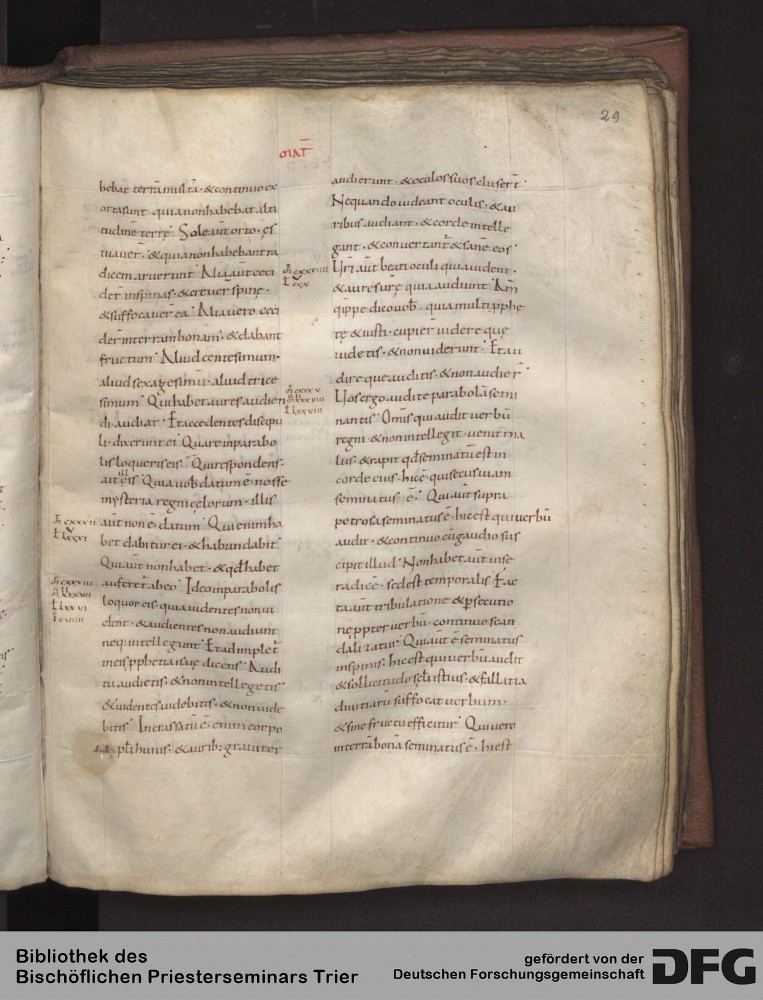 29
MAT̄
bebat terrā multā · & continuo ex
orta sunt · quia non habebat alti
tudinē terrę · Sole aūt orto · ęs
tuauer̄ · & quia non habebant ra
dicem aruerunt · Alia aūt ceci
der̄ in spinas · & creuer̄ spinę ·
& suffocauer̄ ea · Alia uero ceci
der̄ in terram bonam · & dabant
fructum · Aliud centesimum ·
aliud sexagesimū · aliud trice
simum · Qui habet aures audien
di audiat · Et accedentes discipu
li · dixerunt ei · Quare in parabo
lis loqueris eis · Qui respondens ·
ait illis · Quia uob datum ē nosse
mysteria regni cęlorum · illis
aūt non ē datum · Qui enim ha
bet dabitur ei · & habundabit
Qui aūt non habet · & qđ habet
aufer&ur̄ ab eo · Ideo in parabolis
loquor eis · quia uidentes non ui
dent · & audientes non audiunt
neq: intellegunt · Et adimplet̄
in eis pphetia isaię dicens · Audi
tu audietis · & non intellegetis
& uidentes uidebitis · & non uide
bitis · Incrassatū ē · enim cor po
pli huius · & aurib: grauiter
audierunt · & oculos suos cluser̄t ·
Nequando uideant oculis · & au
ribus audiant · & corde intelle
gant · & conuertant̄ & sanē eos ·
Uri aūt beati oculi quia uident ·
& aures urę quia audiunt · Am̄
qippe dico uob · quia multi pphe
tę & iusti · cupier̄ uidere quę
uidetis · & non uiderunt · Et au
dire que auditis · & non audier̄ ·
Uos ergo audite parabolā semi
nantis · Omīs qui audit uerbū
regni · & non intellegit · uenit ma
lus · & rapit qđ seminatū est in
corde eius · hic ē qui secus uiam
seminatus ē · Qui aūt supra
petrosa seminatus ē · hic est qui uerbū
audit · & continuo cū gaudio sus
cipit illud · Non habet aūt in se
radicē · sed est temporalis · Fac
ta aūt tribulatione & psecutio
ne ppter uerbū · continuo scan
dalizatur · Qui aūt ē seminatus
in spinis · hic est qui uerbū audit
& sollicitudo sęli istius · & fallatia
diuitiarū suffocat uerbum ·
& sine fructu efficitur · Qui uero
in terrā bonā seminatus ē · hic st
Bibliothek des
Bischöflichen Priesterseminars Trier
gefördert von der
Deutschen Forschungsgemeinschaft
DFG